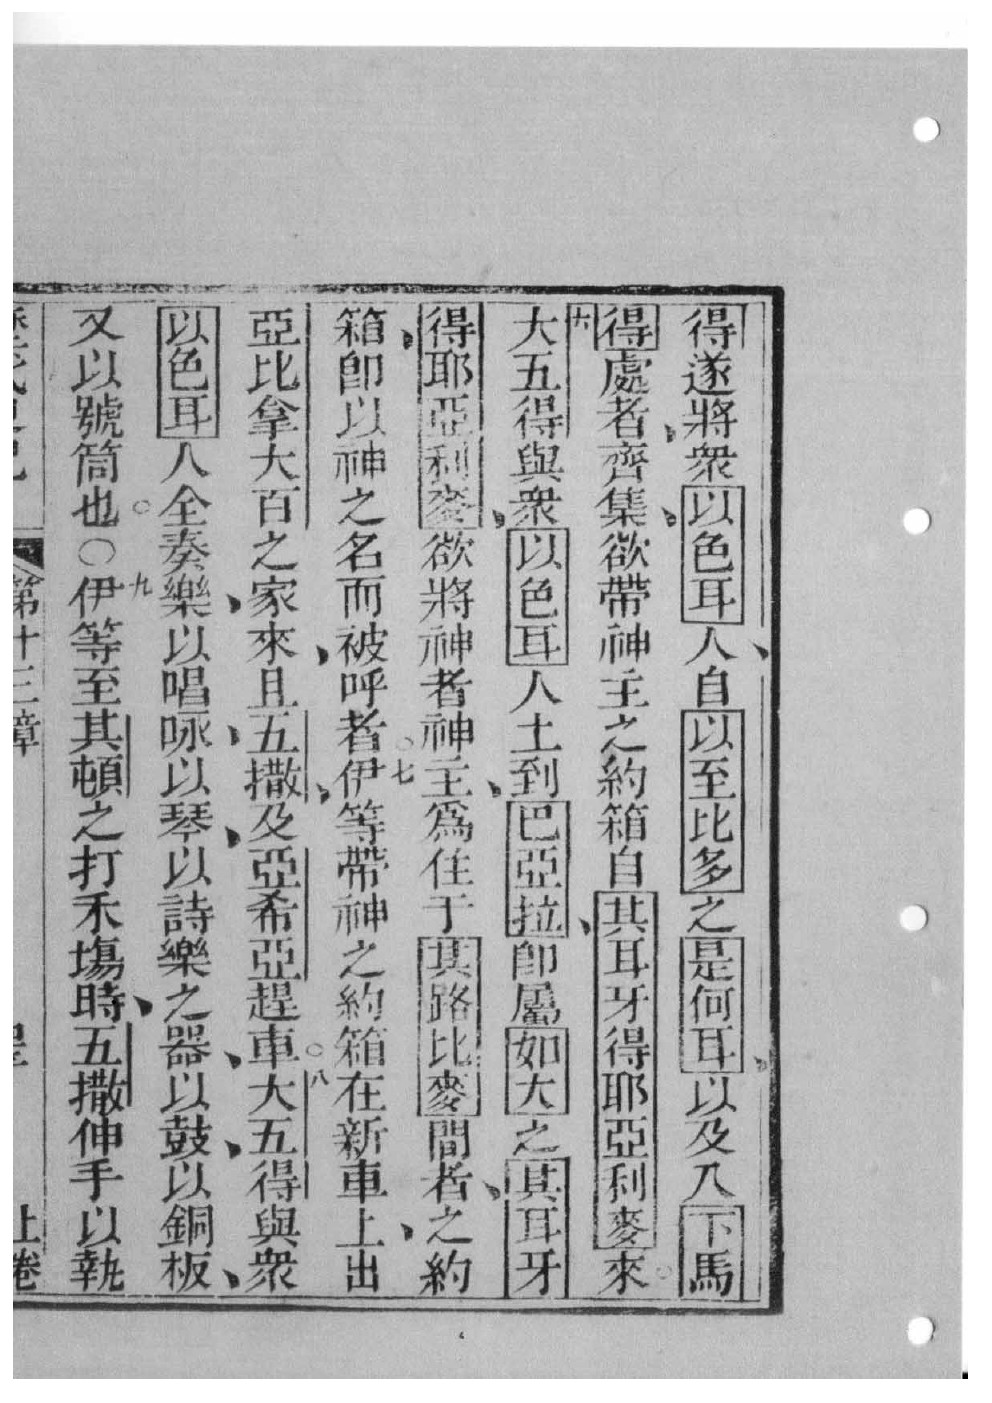 得遂將衆以色耳人自以至比多之是何耳以及入下馬
得處者齊集欲帶神主之約箱自其耳牙得耶亞利麥來
六大五得與衆以色耳人土到巴亞拉卽屬如大之其耳牙
得耶亞利麥欲將神者神主爲住于其路比麥間者之約
箱卽以神之名而被呼者七伊等帶神之約箱在新車上出
亞比拿大百之家來且五撒及亞希亞趕車八大五得與衆
以色耳人全奏樂以唱咏以琴以詩樂之器以鼓以銅板
又以號筒也○九伊等至其頓之打禾塲時五撒伸手以執
第十三章
上卷